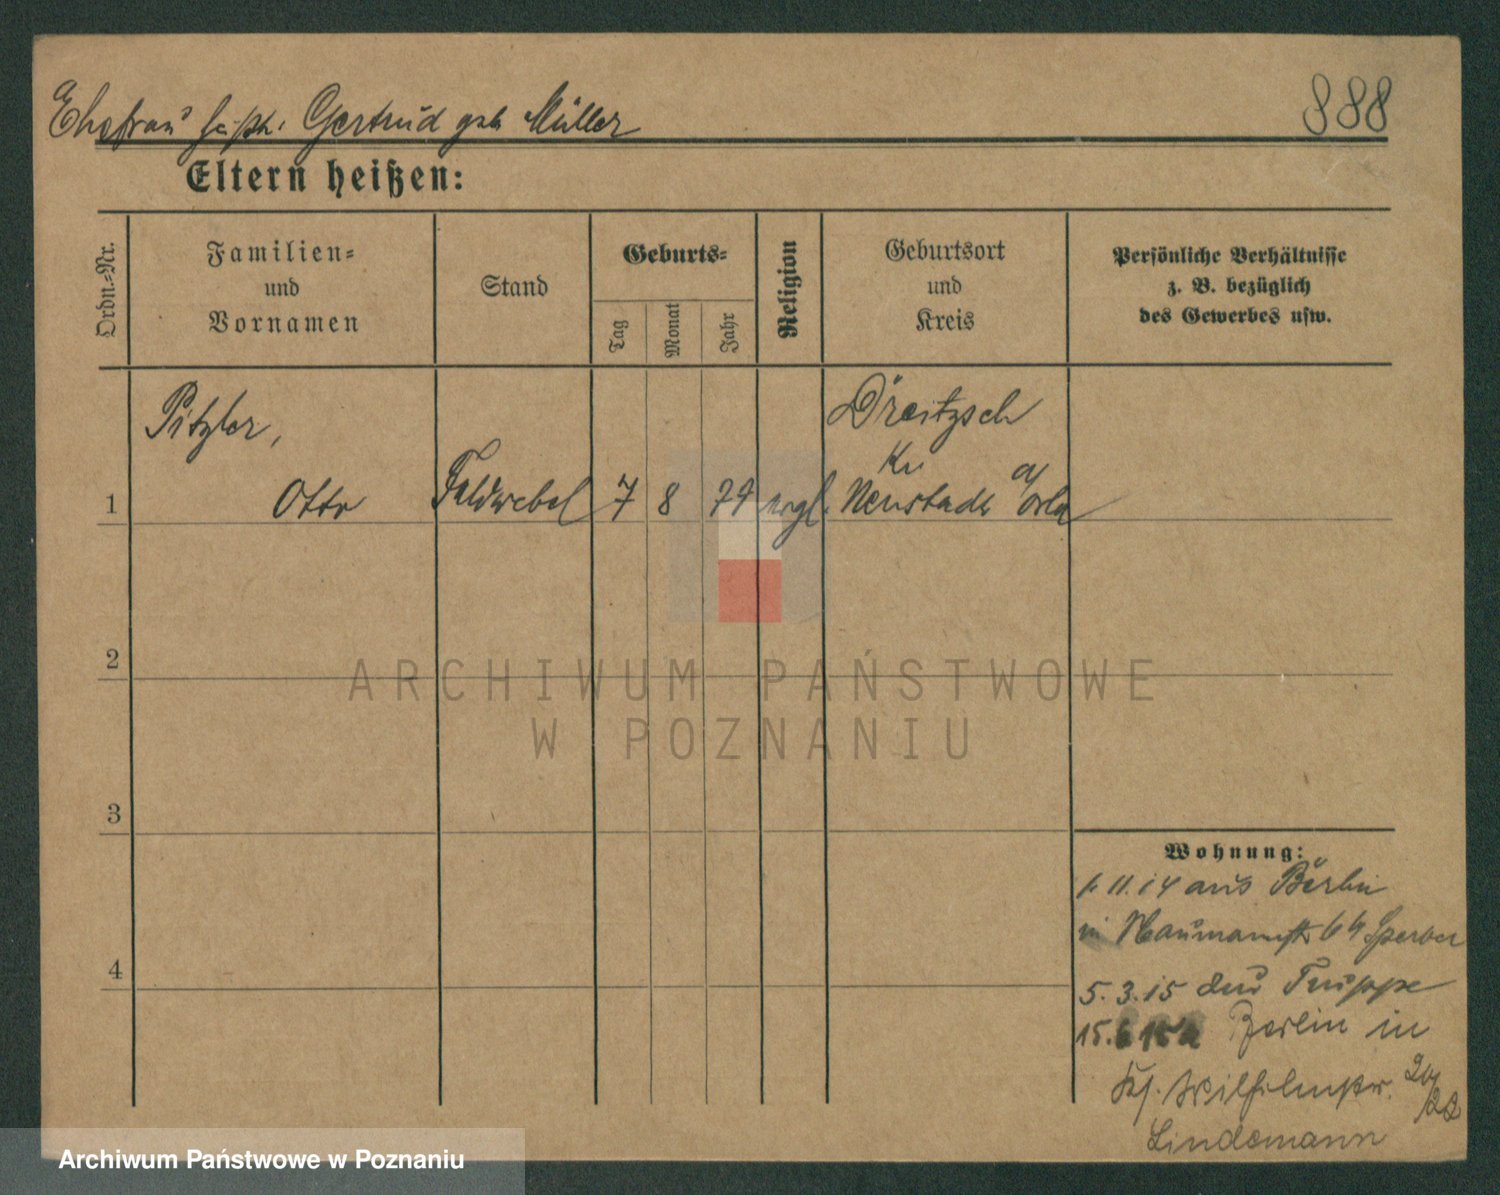 Ehefrau Gertrud geb Müller
888
Eltern heißen:
Ordn.-Nr.
Familien-
und
Vornamen
Stand
Geburts-
Tag
Monat
Jahr
Religion
Geburtsort
und
Kreis
Persönliche Verhältnisse
z. B. bezüglich
des Gewerbes usw.
1
Pitzler,
Otto
Feldwebel
7
8
79
evgl.
Dreitzsch
Kr
Neustadt a/Orla
2
3
4
ARCHIWUM PAŃSTWOWE
W POZNANIU
Wohnung:
1.11.14 aus Berlin
in Naumannstr Sperber
5.3.15 zur Truppe
15.6.15 a Berlin in
20/22
Lindemann
Archiwum Państwowe w Poznaniu